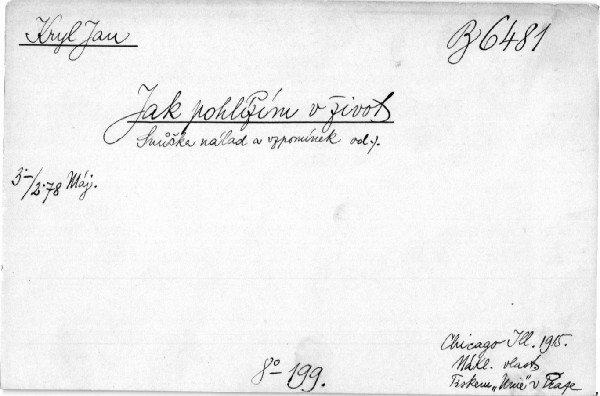 Kryl Jan
B 6481
Jak pohlížím v život
Snůška nálad a vzpomínek od:).
3·-/2·78 Máj.
8° - 199.
Chicago Ill. 1915.
Nákl. vlast.
Tiskem „Unie" v Praze